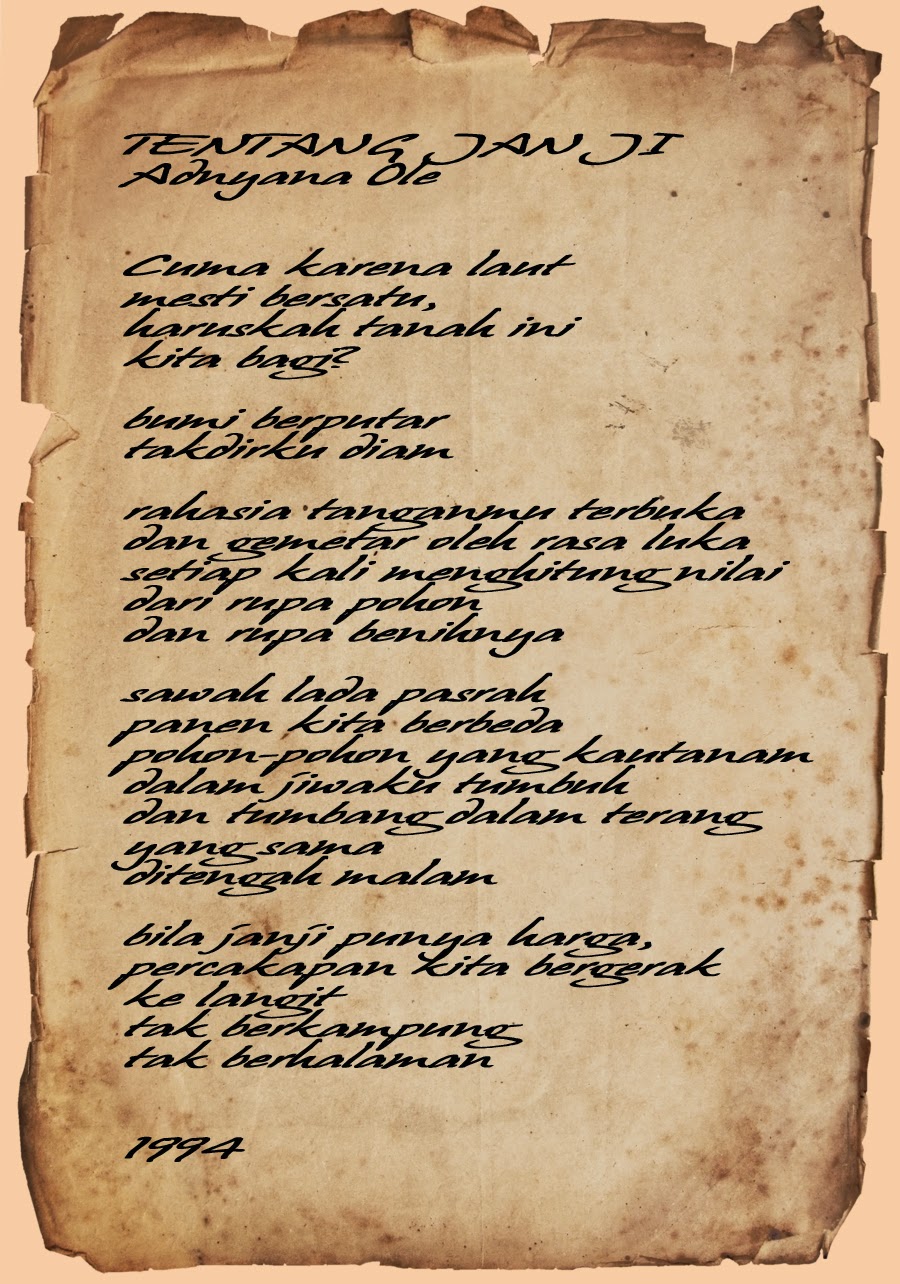 TENTANG JANJI
Adnyana Ole
Cuma karena laut
mesti bersatu,
haruskah tanah ini
kita bagi?
bumi berputar
takdirku diam
rahasia tanganmu terbuka
dan gemetar oleh rasa luka
setiap kali menghitung nilai
dari rupa pohon
dan rupa benihnya
sawah lada pasrah
panen kita berbeda
pohon-pohon yang kautanam
dalam jiwaku tumbuh
dan tumbang dalam terang
yang sama
ditengah malam
bila janji punya harga,
percakapan kita bergerak
ke langit
tak berkampung
tak berhalaman
1994